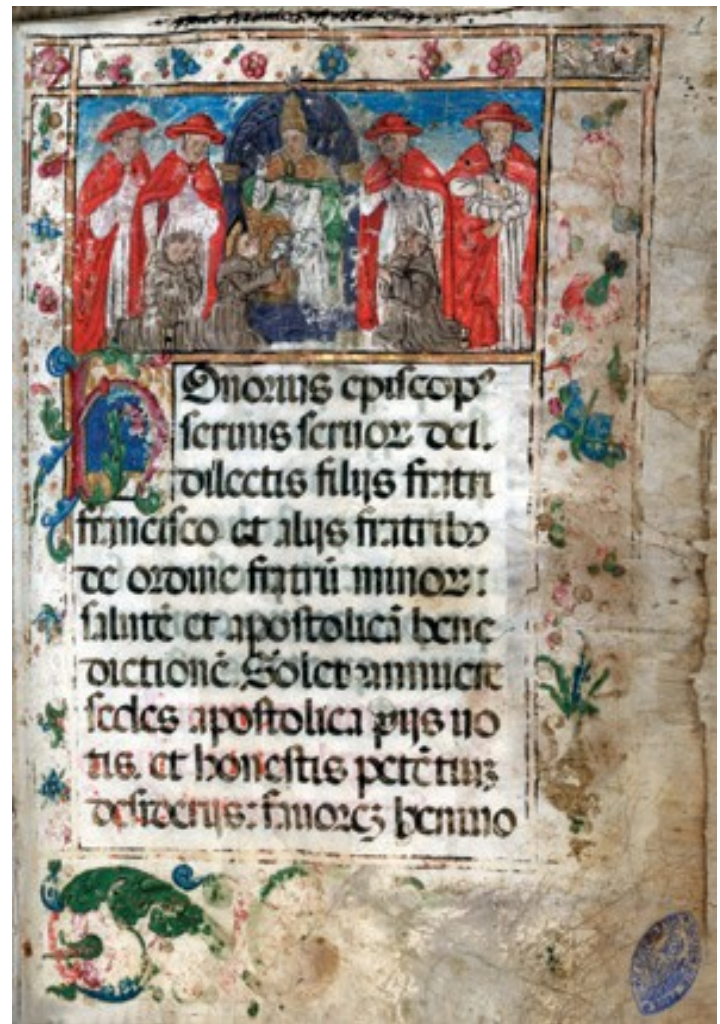 1
Onorius episcopꝰ
seruus seruoꝝ dei.
dilectis filijs fratri
francisco et alijs fratribꝰ
de ordine fratrū minoꝝ :
salutē et apostolicā bene
dictionē. Solet annuere
sedes apostolica pijs uo
tis. et honestis petētiuꝫ
desiderijs : fauoreꝫ beniuo